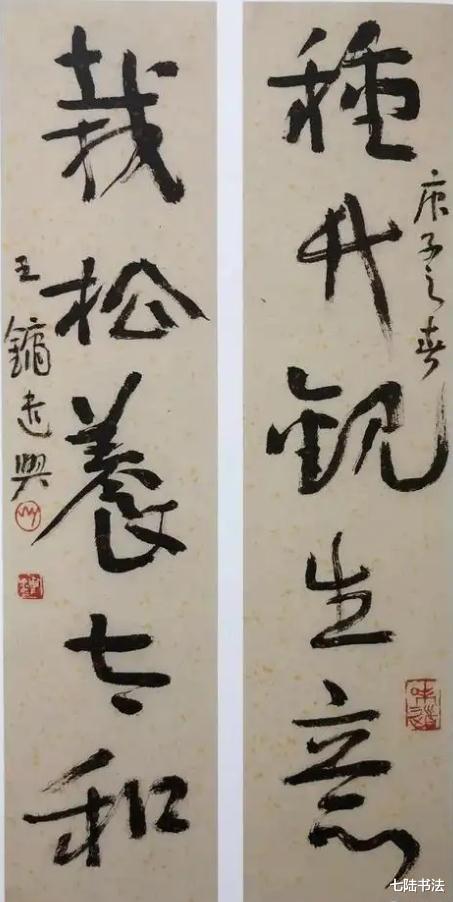 庚子之春
種竹觀生意
栽松養太和
王鏞遣興
七陆书法